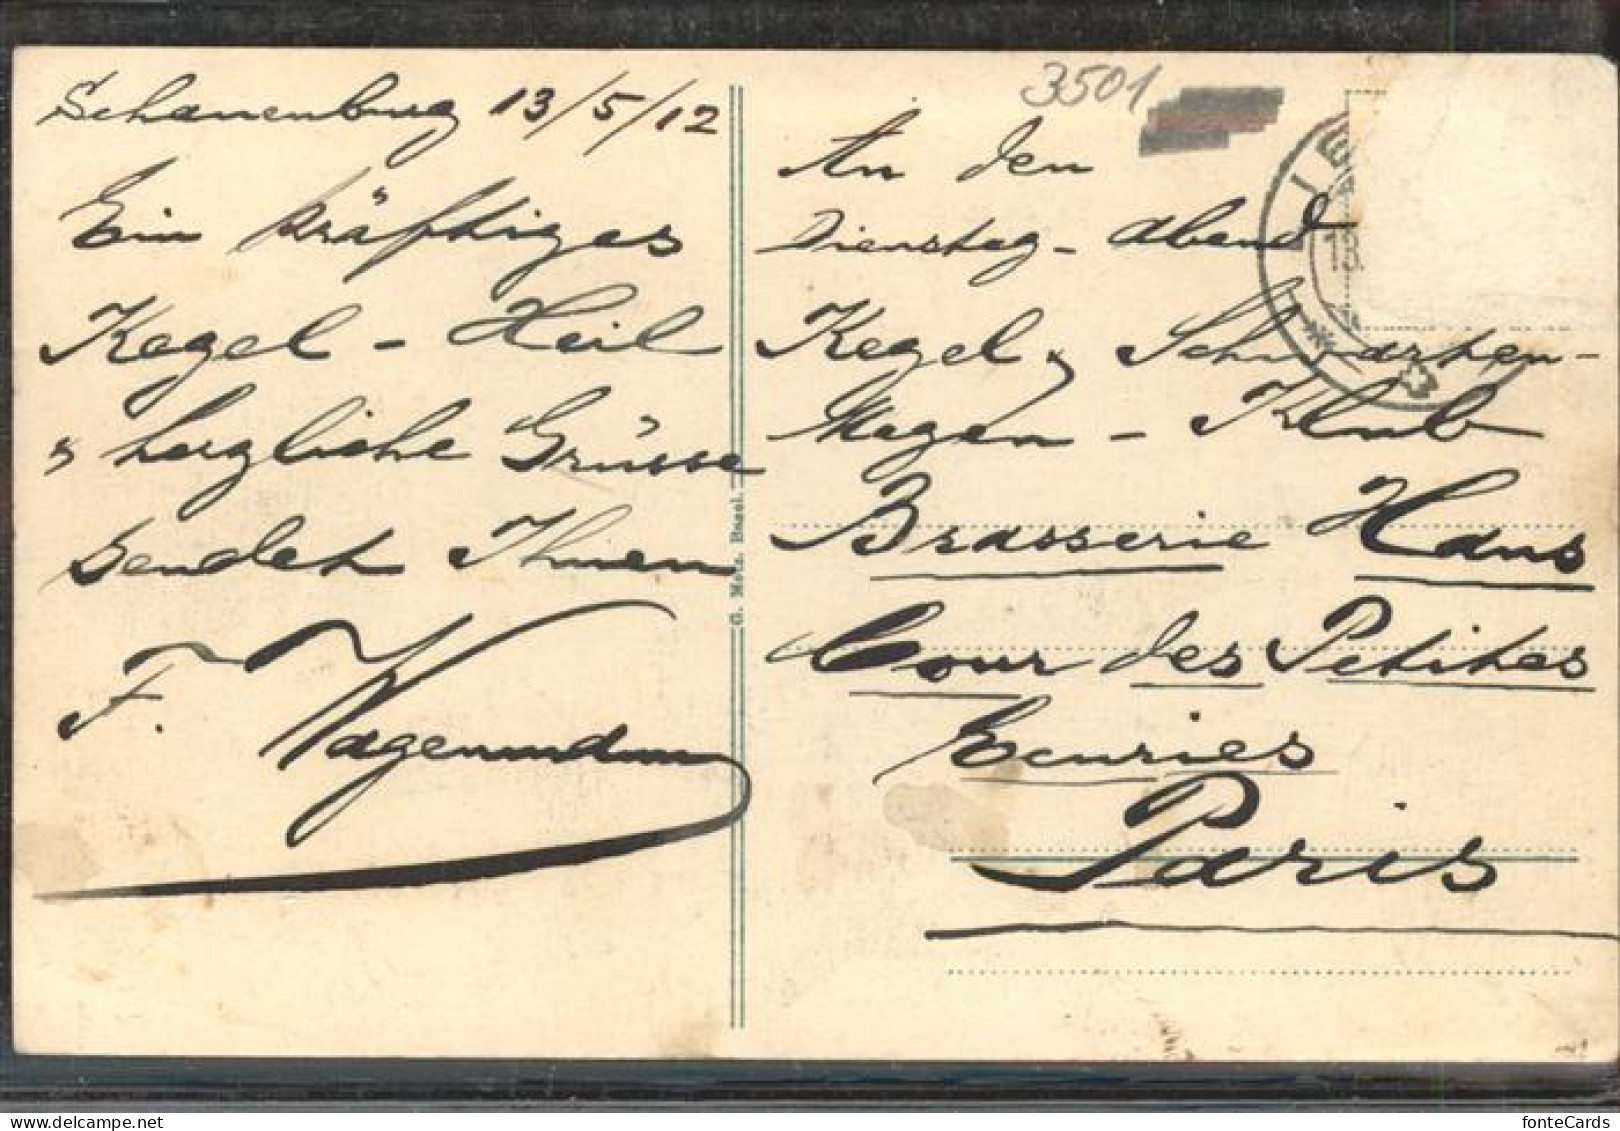 Schauenburg 13/5/12
Ein kräftiges
Kegel - Heil
u herzliche Grüsse
sendet Ihnen
F.
3501
An den
Dienstag - Abend
Kegel u Schwarten-
Magen - Klub
Brasserie Hans
Cour des Petites
Ecuries
Paris
G. Metz. Basel.
13.
fonteCards